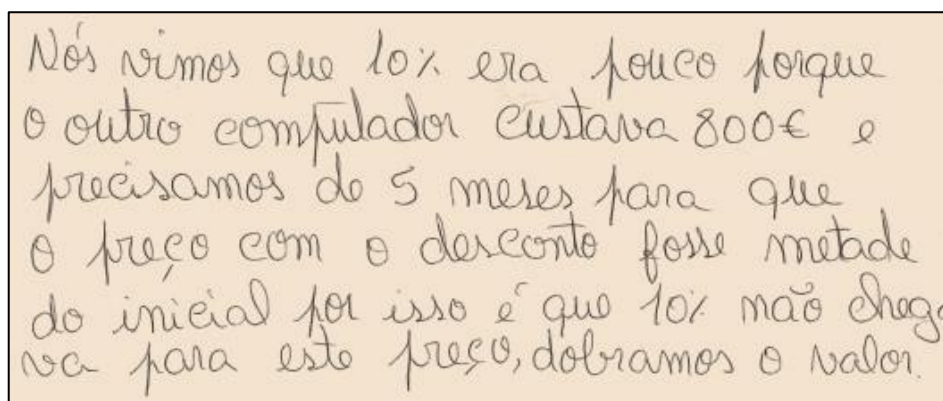 Nós vimos que 10% era pouco porque
o outro computador custava 800€ e
precisamos de 5 meses para que
o preço com o desconto fosse metade
do inicial por isso é que 10% não chega
va para este preço, dobramos o valor.